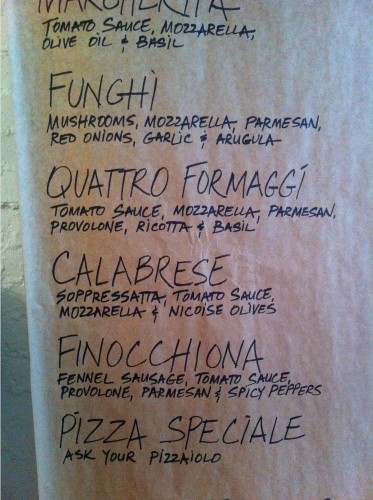 MARGHERITA
TOMATO SAUCE, MOZZARELLA,
OLIVE OIL & BASIL
FUNGHI
MUSHROOMS, MOZZARELLA, PARMESAN,
RED ONIONS, GARLIC & ARUGULA
QUATTRO FORMAGGI
TOMATO SAUCE, MOZZARELLA, PARMESAN,
PROVOLONE, RICOTTA & BASIL
CALABRESE
SOPPRESSATTA, TOMATO SAUCE,
MOZZARELLA & NICOISE OLIVES
FINOCCHIONA
FENNEL SAUSAGE, TOMATO SAUCE,
PROVOLONE, PARMESAN & SPICY PEPPERS
PIZZA SPECIALE
ASK YOUR PIZZAIOLO